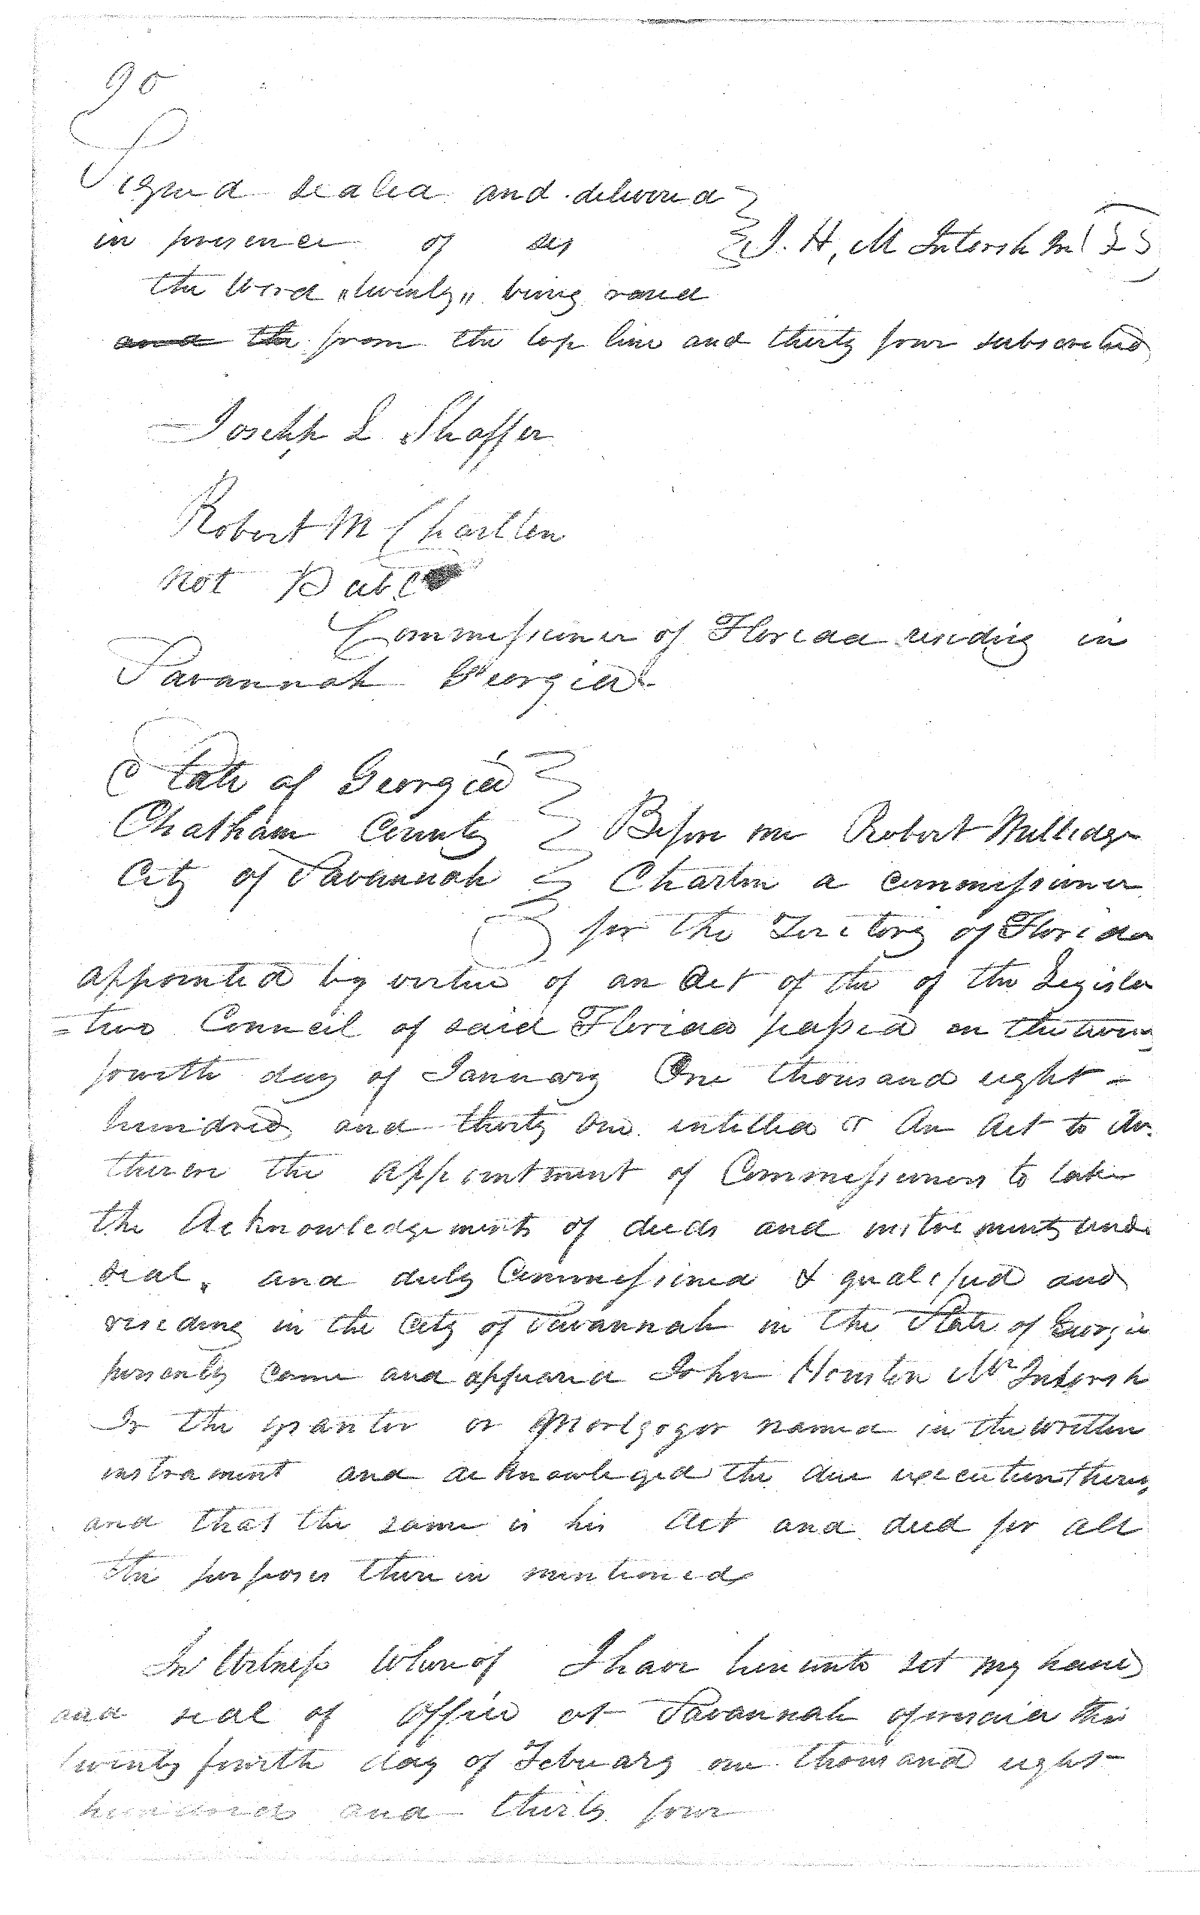 90
Signed sealed and delivered
in presence of us } J. H. McIntosh Jn (LS)
the word "twenty" being rased
and the from the top line and thirty four subscribed
Joseph L Shaffer
Robert M Charlton
Not Public
Commissioner of Florida residing in
Savannah Georgia
State of Georgia
Chatham County } Before me Robert Milledge
City of Savannah } Charlton a commissioner
for the Teritory of Florida
appointed by virtue of an Act of the of the Legisla
=tive Council of said Florida passed on the twenty
fourth day of January One thousand eight
hundred and thirty one intitled " An Act to Au
therise the appointment of Commissioners to take
the Acknowledgements of deeds and instruments under
seal, and duly Commissioned & qualified and
residing in the City of Savannah in the State of Georgia
personally came and appeared John Houston McIntosh
Jr the grantor or Mortgagor named in the written
instrument and acknowleged the due execution thereof
and that the same is his Act and deed for all
the purposes therein mentioned
In Witness Whereof I have hereunto set my hand
and seal of office at Savannah aforesaid this
twenty fourth day of February one thousand eight
hundred and thirty four